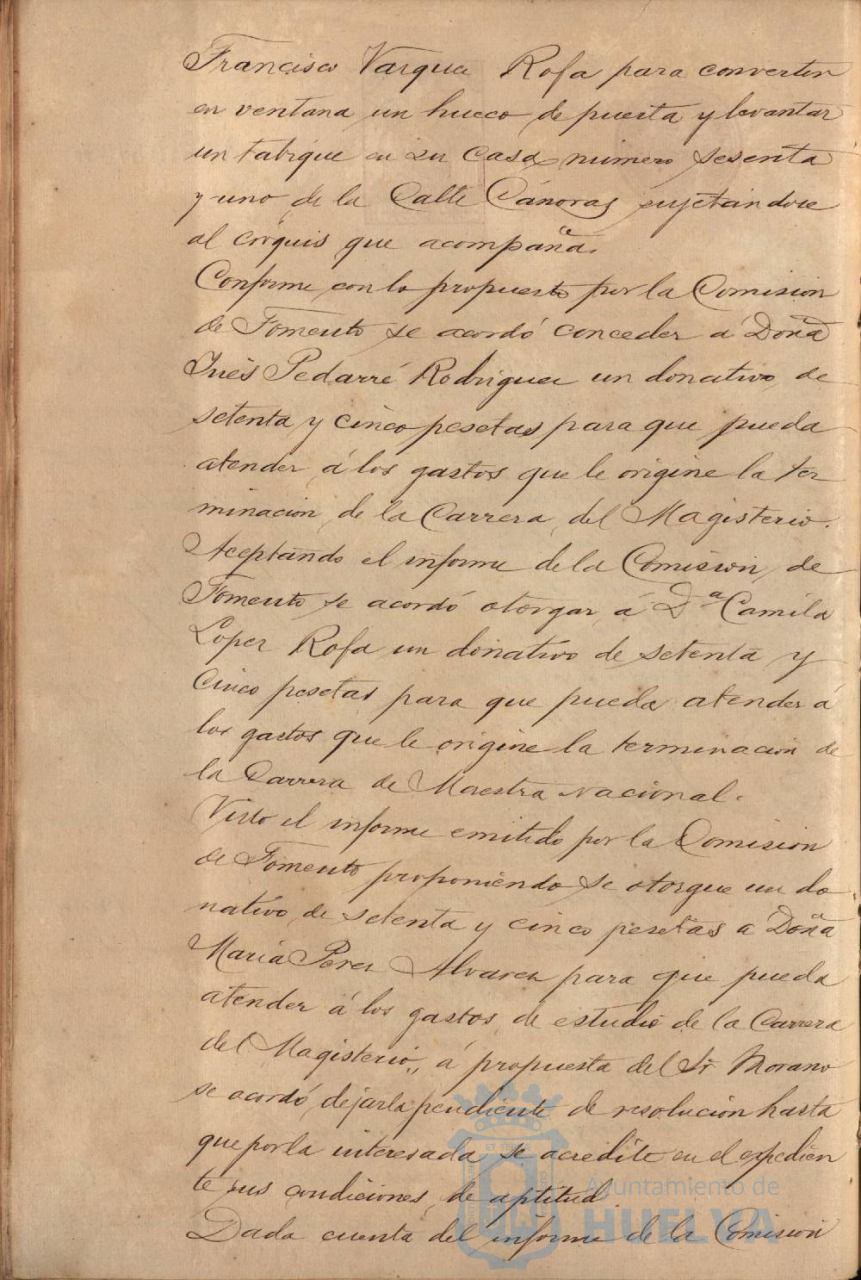 Francisco Varquez Rofa para converter
en ventana un hueco de puerta y levantar
un tabique en su casa número sesenta
y uno de la Calle Cánovas sujetándose
al cróquis que acompaña.
Conforme con lo propuesto por la Comision
de Fomento se acordó conceder á Doña
Inés Pedarré Rodriguez un donativo de
setenta y cinco pesetas para que pueda
atender á los gastos que le origine la ter
minacion de la Carrera del Magisterio.
Aceptando el informe de la Comision de
Fomento se acordó otorgar á D.ª Camila
Lopez Rofa un donativo de setenta y
cinco pesetas para que pueda atender á
los gastos que le origine la terminacion de
la Carrera de Maestra nacional.
Visto el informe emitido por la Comision
de Fomento proponiendo se otorgue un do
nativo de setenta y cinco pesetas a Doña
María Perez Alvarez para que pueda
atender á los gastos de estudio de la Carrera
del Magisterio, á propuesta del Sr. Morano
se acordó dejarla pendiente de resolucion hasta
que por la interesada se acredite en el expedien
te sus condiciones de aptitud.
Dada cuenta del informe de la Comision
Ayuntamiento de
HUELVA